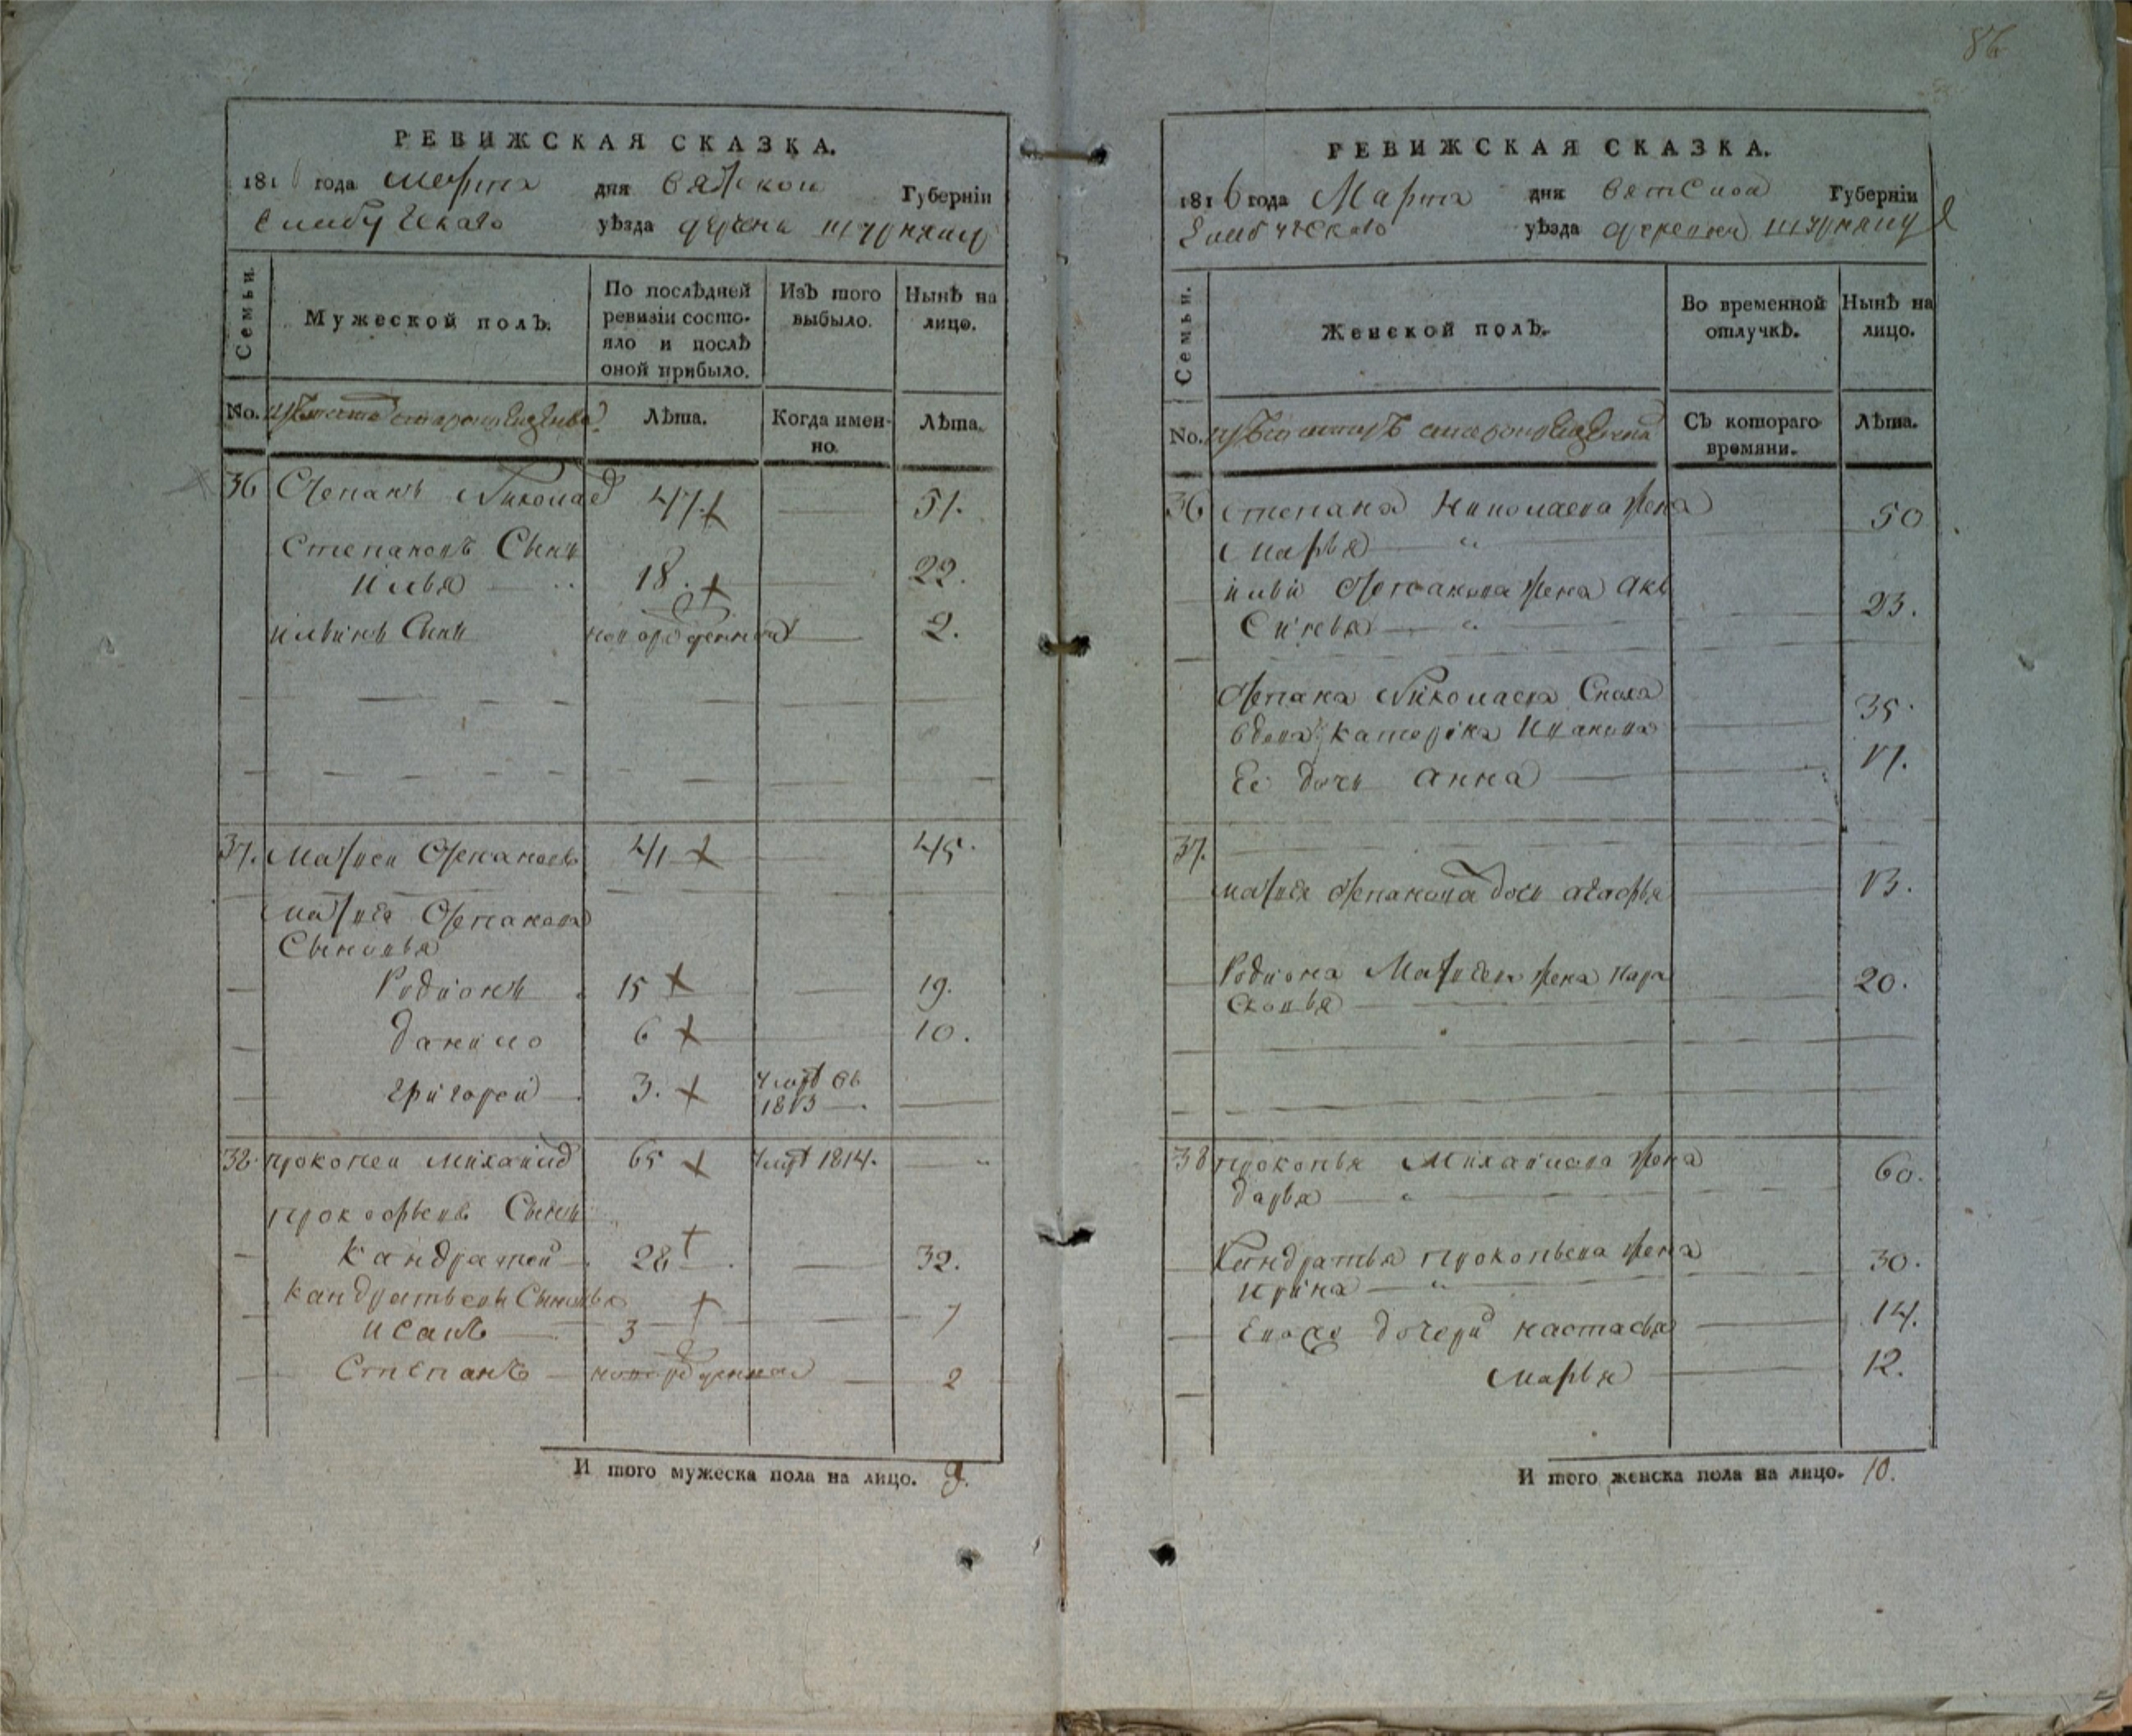 86
РЕВИЖСКАЯ СКАЗКА.
181 года Марта дня Вятской Губерніи
уѣзда
Семьи.
Мужеской полъ.
По послѣдней ревизіи состо-
яло и послѣ
оной прибыло.
Изъ того выбыло.
Нынѣ на лицо.
No.
Лѣта.
Когда имен-
но.
Лѣта.
36 Степанъ Николаев 47 51.
Степановъ Сынъ
Илья 18. 22.
Ильинъ Сынъ новорожденной 2.
37. Матвей Степановъ 41 45.
Матвея Степанова
Сыновья
Родионъ 15 19.
Данило 6 10.
Григорей 3. 1813
38. Прокопей Михайлов 65 1814.
Сынъ
Кандратей 28 32.
Кандратьевы Сыновья
Исакъ 3 7
Степанъ новорожденной 2
И того мужеска пола на лицо. 9.
РЕВИЖСКАЯ СКАЗКА.
1816 года Марта дня Вятской Губерніи
уѣзда деревни
Семьи.
Женской полъ.
Во временной отлучкѣ.
Нынѣ на лицо.
No.
Съ котораго времяни.
Лѣта.
36 Степана Николаева жена 50
Марья
Ильи Степанова жена Акс
Синья 23.
Степана Николаева Сноха
вдова Катерина Иванова 35.
Ее дочь Анна 17.
37.
Матвея Степанова дочь Агафья 13.
Родиона Матвеева жена Пара
сковья 20.
38 Прокопья Михайлова жена
Дарья 60.
Кандратья Прокопьева жена
Ирина 30.
Евоже дочери Настасья 14.
Марья 12.
И того женска пола на лицо. 10.